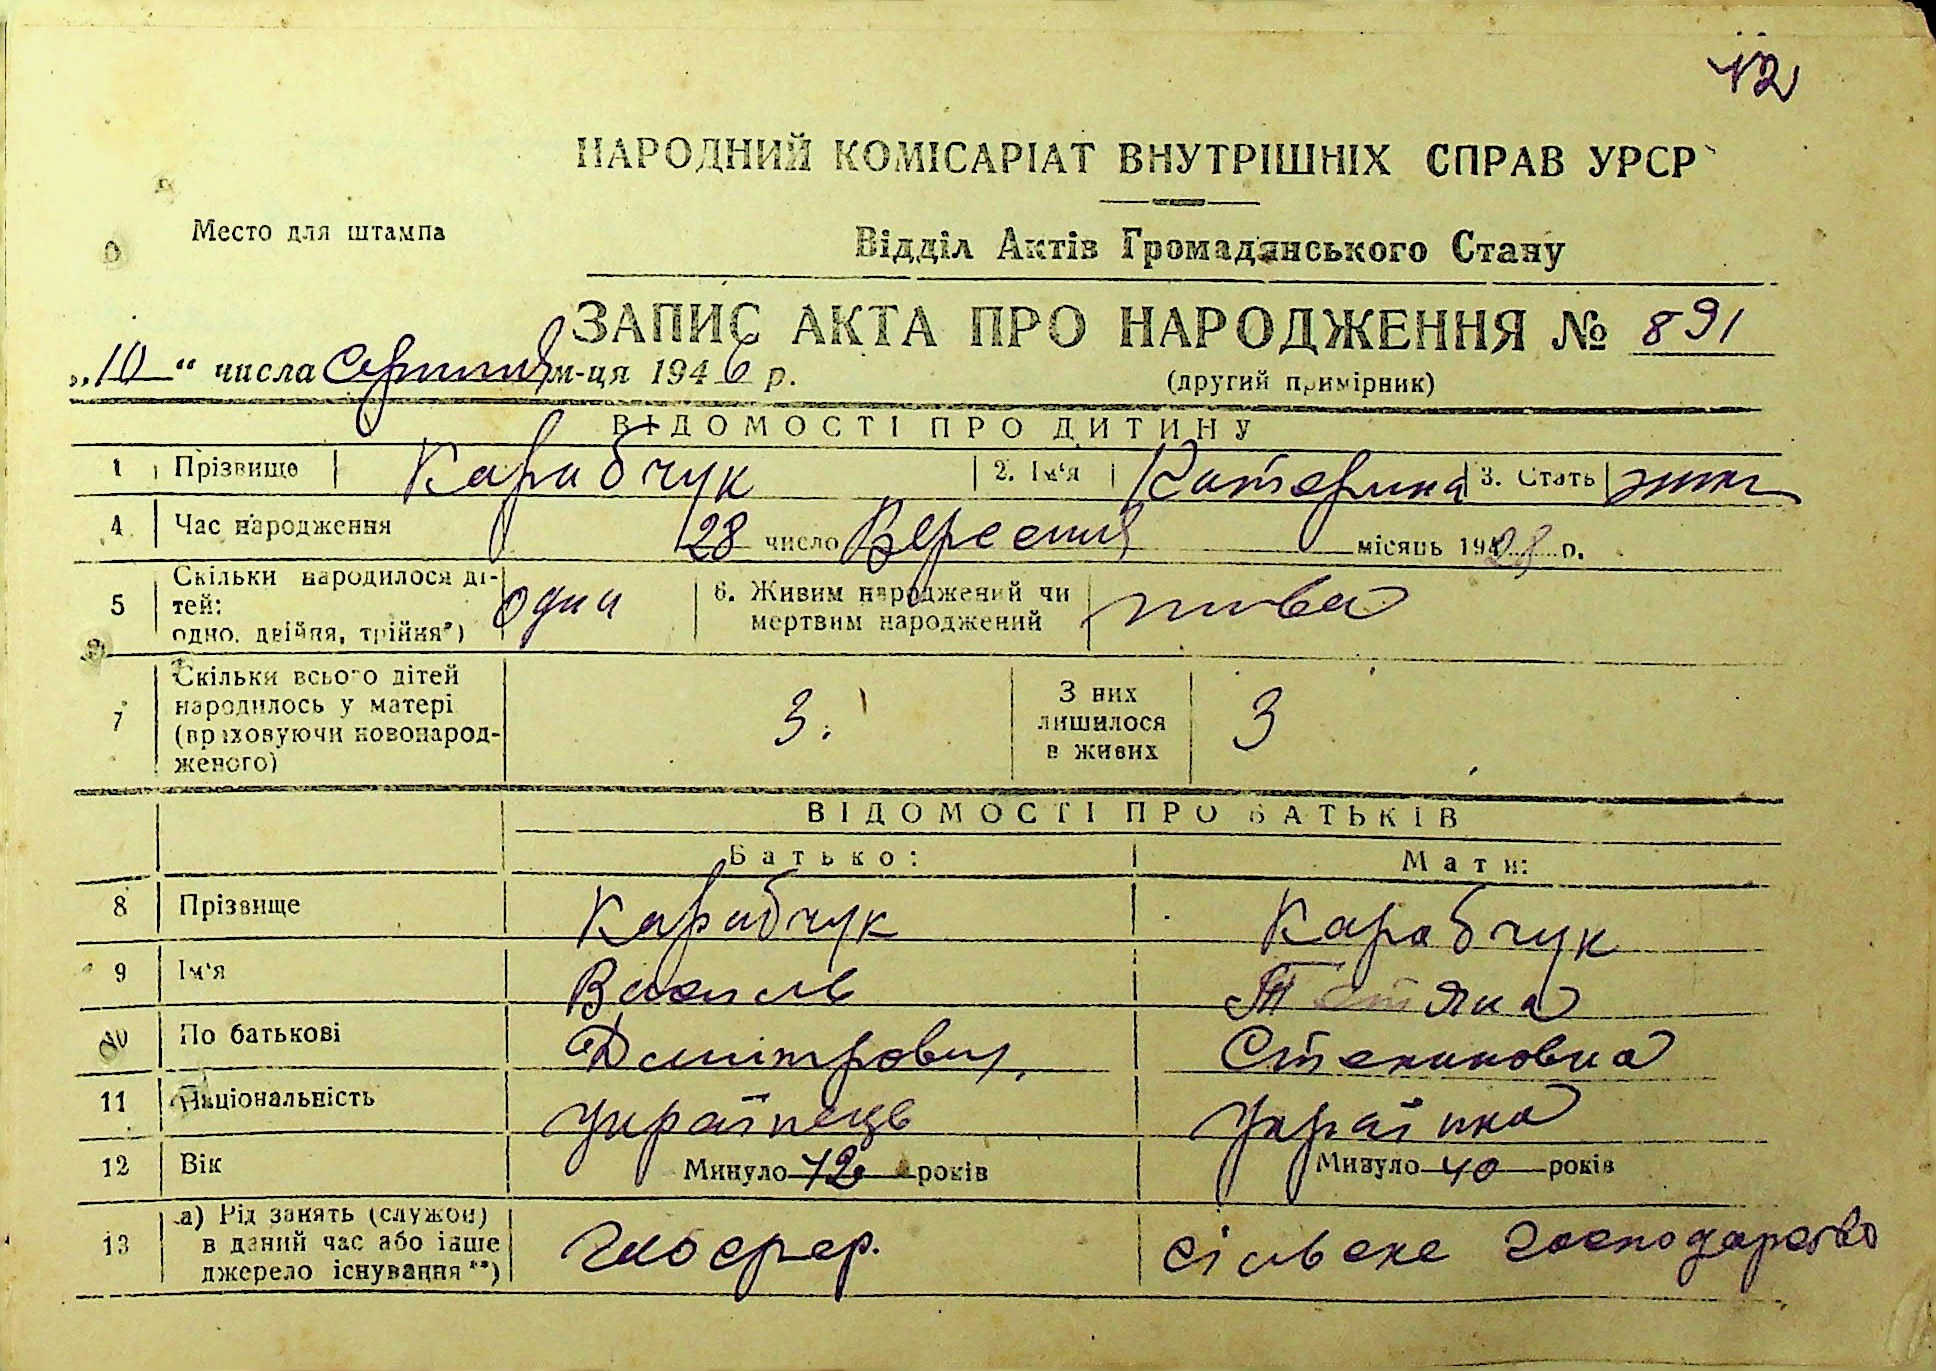 42
НАРОДНИЙ КОМІСАРІАТ ВНУТРІШНІХ СПРАВ УРСР
Место для штампа
Відділ Актів Громадянського Стану
ЗАПИС АКТА ПРО НАРОДЖЕННЯ № 891
„10“ числа серпня м-ця 1946 р.
(другий примірник)
ВІДОМОСТІ ПРО ДИТИНУ
1 Прізвище Карабчук 2. Ім'я Катерина 3. Стать
4 Час народження 28 число Вересня місяць 1928 р.
5 Скільки народилося ді-
тей:
одно, двійня, трійня*) одна 6. Живим народжений чи
мертвим народжений жива
7 Скільки всього дітей
народилось у матері
(враховуючи новонарод-
женого) 3. З них
лишилося
в живих 3
ВІДОМОСТІ ПРО БАТЬКІВ
Батько: Мати:
8 Прізвище Карабчук Карабчук
9 Ім'я Василь Тетяна
10 По батькові Дмітрович Степановна
11 Національність Українець Українка
12 Вік Минуло 42 років Минуло 40 років
13 а) Рід занять (служби)
в даний час або інше
джерело існування**) сільске господарство